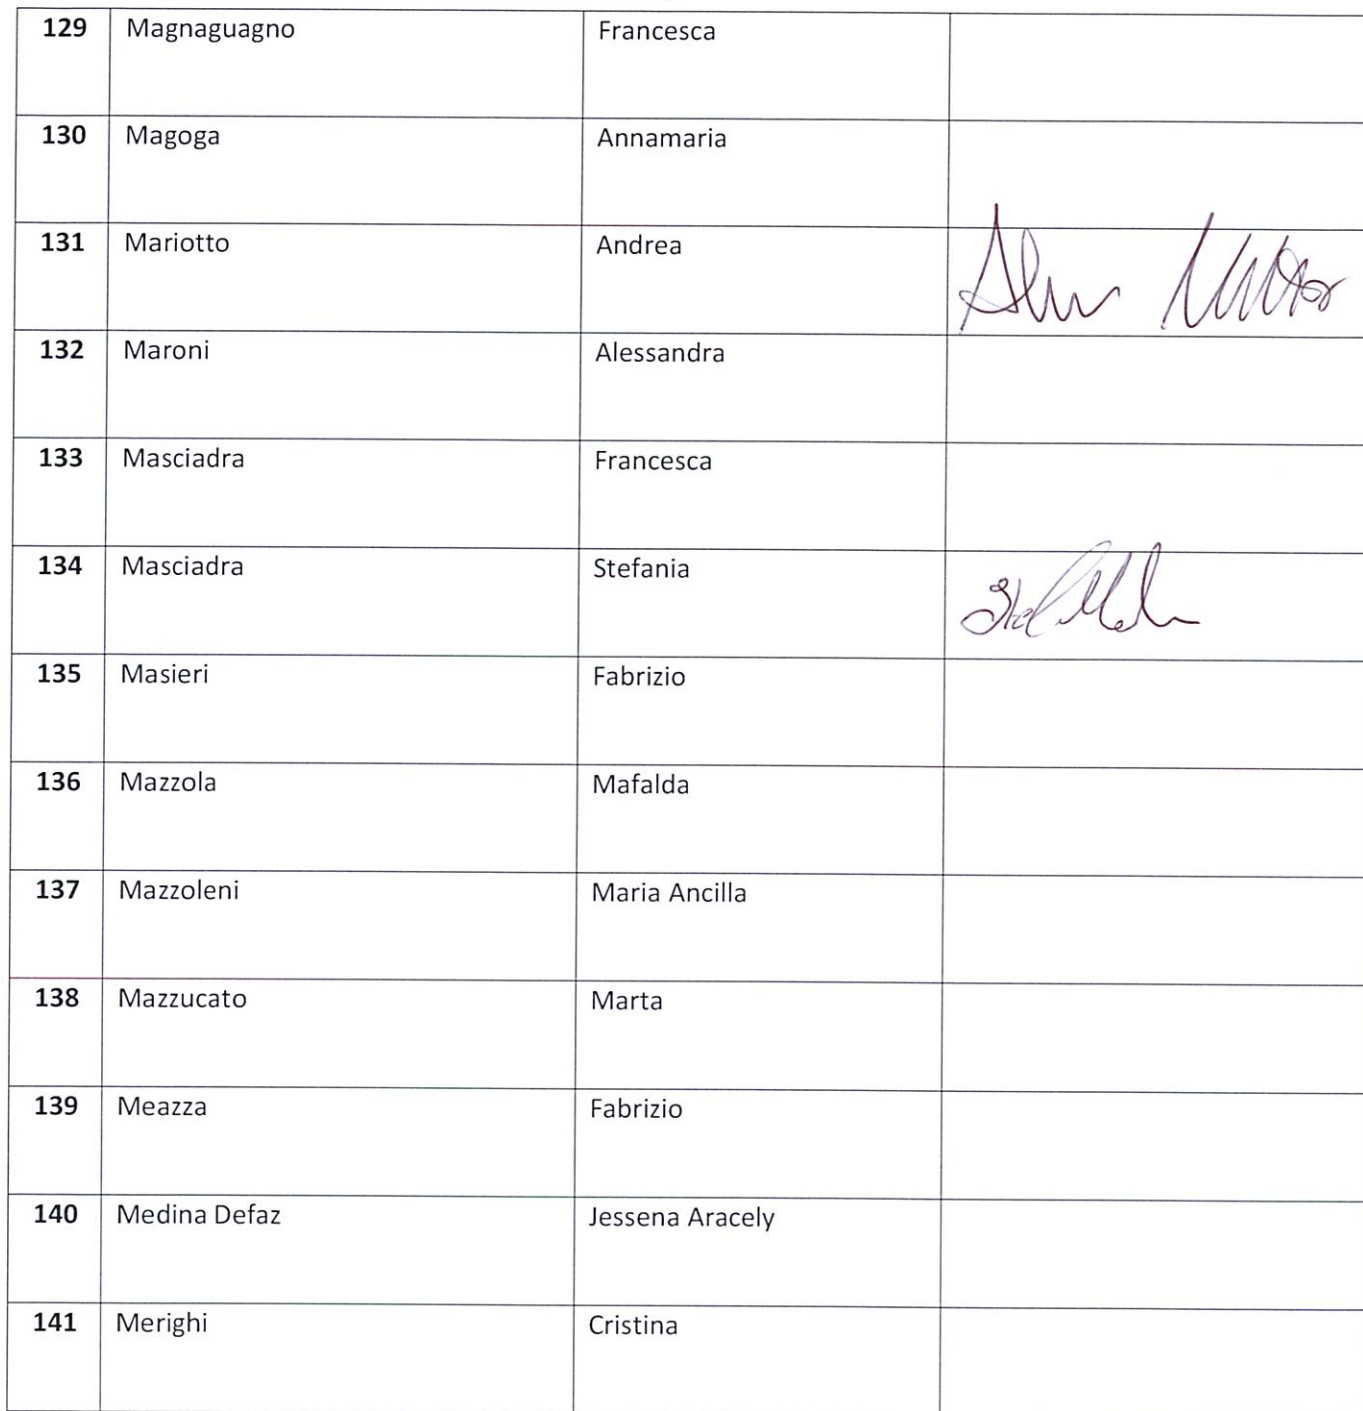 129 Magnaguagno Francesca
130 Magoga Annamaria
131 Mariotto Andrea
132 Maroni Alessandra
133 Masciadra Francesca
134 Masciadra Stefania
135 Masieri Fabrizio
136 Mazzola Mafalda
137 Mazzoleni Maria Ancilla
138 Mazzucato Marta
139 Meazza Fabrizio
140 Medina Defaz Jessena Aracely
141 Merighi Cristina